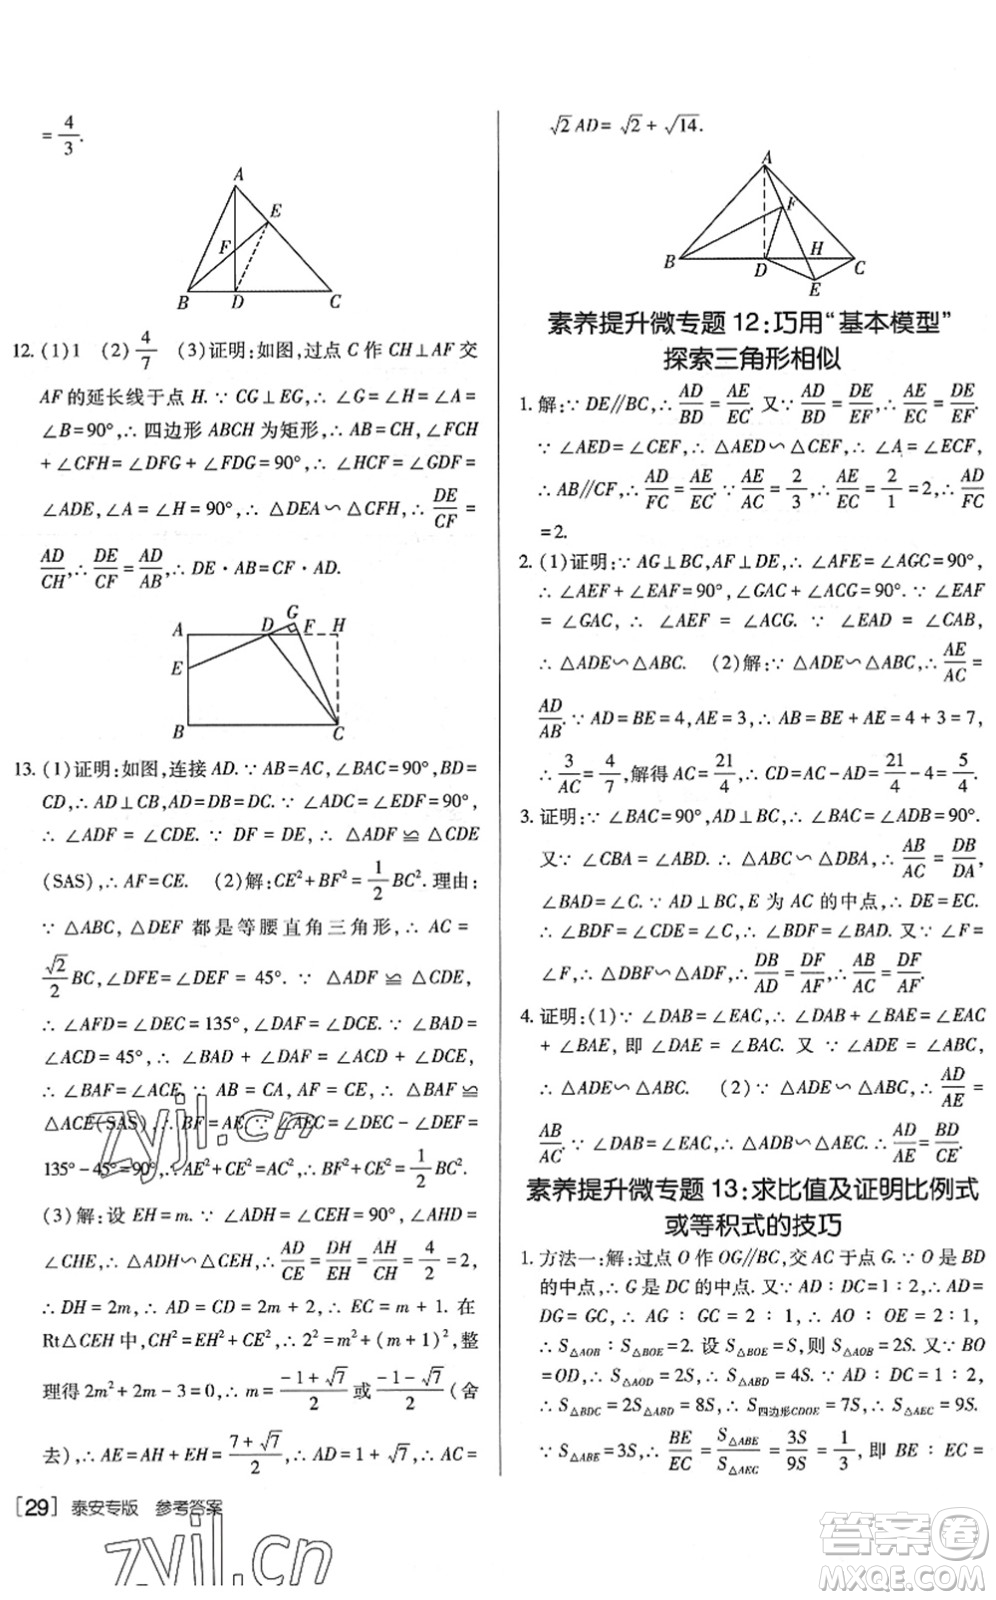 = 4/3.
A
E
F
B D C
12. (1)1 (2) 4/7 (3)证明:如图,过点 C 作 CH⊥AF 交
AF 的延长线于点 H. ∵ CG⊥EG, ∴ ∠G=∠H=∠A=
∠B=90°, ∴ 四边形 ABCH 为矩形, ∴ AB=CH, ∠FCH
+∠CFH=∠DFG+∠FDG=90°, ∴ ∠HCF=∠GDF=
∠ADE, ∠A=∠H=90°, ∴ △DEA∽△CFH, ∴ DE/CF =
AD/CH, ∴ DE/CF = AD/AB, ∴ DE·AB=CF·AD.
G
A D F H
E
B C
13. (1)证明:如图,连接 AD. ∵ AB=AC, ∠BAC=90°, BD=
CD, ∴ AD⊥CB, AD=DB=DC. ∵ ∠ADC=∠EDF=90°,
∴ ∠ADF = ∠CDE. ∵ DF = DE, ∴ △ADF ≌ △CDE
(SAS), ∴ AF=CE. (2)解:CE²+BF²= 1/2 BC². 理由:
∵ △ABC, △DEF 都是等腰直角三角形, ∴ AC =
√2/2 BC, ∠DFE = ∠DEF = 45°. ∵ △ADF ≌ △CDE,
∴ ∠AFD=∠DEC=135°, ∠DAF=∠DCE. ∵ ∠BAD=
∠ACD=45°, ∴ ∠BAD + ∠DAF = ∠ACD + ∠DCE,
∴ ∠BAF=∠ACE. ∵ AB = CA, AF = CE, ∴ △BAF ≌
△ACE(SAS), ∴ BF=AE. ∵ ∠AEC=∠DEC-∠DEF=
135°-45°=90°, ∴ AE²+CE²=AC², ∴ BF²+CE²= 1/2 BC².
(3)解:设 EH=m. ∵ ∠ADH=∠CEH=90°, ∠AHD=
∠CHE, ∴ △ADH∽△CEH, ∴ AD/CE = DH/EH = AH/CH = 4/2 = 2,
∴ DH=2m, ∴ AD = CD = 2m + 2, ∴ EC = m+1. 在
Rt△CEH 中, CH²=EH²+CE², ∴ 2²=m²+(m+1)², 整
理得 2m²+2m-3=0, ∴ m= (-1+√7)/2 或 (-1-√7)/2 (舍
去), ∴ AE=AH+EH= (7+√7)/2, ∴ AD=1+√7, ∴ AC=
[29] 泰安专版 参考答案
√2 AD= √2 + √14.
A
F
B D H C
E
素养提升微专题 12:巧用“基本模型”
探索三角形相似
1. 解:∵ DE∥BC, ∴ AD/BD = AE/EC. 又∵ AD/BD = DE/EF, ∴ AE/EC = DE/EF.
∵ ∠AED=∠CEF, ∴ △AED∽△CEF, ∴ ∠A=∠ECF,
∴ AB∥CF, ∴ AD/FC = AE/EC. ∵ AE/AC = 2/3, ∴ AE/EC = 2/1 =2, ∴ AD/FC
=2.
2. (1)证明:∵ AG⊥BC, AF⊥DE, ∴ ∠AFE=∠AGC=90°,
∴ ∠AEF+∠EAF=90°, ∠GAC+∠ACG=90°. ∵ ∠EAF
=∠GAC, ∴ ∠AEF = ∠ACG. ∵ ∠EAD = ∠CAB,
∴ △ADE∽△ABC. (2)解:∵ △ADE∽△ABC, ∴ AE/AC =
AD/AB. ∵ AD=BE=4, AE=3, ∴ AB=BE+AE=4+3=7,
∴ 3/AC = 4/7, 解得 AC= 21/4, ∴ CD=AC-AD= 21/4 -4= 5/4.
3. 证明:∵ ∠BAC=90°, AD⊥BC, ∴ ∠BAC=∠ADB=90°.
又∵ ∠CBA=∠ABD, ∴ △ABC∽△DBA, ∴ AB/AC = DB/DA,
∠BAD=∠C. ∵ AD⊥BC, E 为 AC 的中点, ∴ DE=EC.
∴ ∠BDF = ∠CDE = ∠C, ∴ ∠BDF = ∠BAD. 又∵ ∠F =
∠F, ∴ △DBF∽△ADF, ∴ DB/AD = DF/AF, ∴ AB/AC = DF/AF.
4. 证明:(1)∵ ∠DAB=∠EAC, ∴ ∠DAB+∠BAE=∠EAC
+∠BAE, 即 ∠DAE = ∠BAC. 又 ∵ ∠ADE = ∠ABC,
∴ △ADE∽△ABC. (2)∵ △ADE∽△ABC, ∴ AD/AE =
AB/AC. ∵ ∠DAB=∠EAC, ∴ △ADB∽△AEC. ∴ AD/AE = BD/CE.
素养提升微专题 13:求比值及证明比例式
或等积式的技巧
1. 方法一:解:过点 O 作 OG∥BC, 交 AC 于点 G. ∵ O 是 BD
的中点, ∴ G 是 DC 的中点. 又∵ AD∶DC=1∶2, ∴ AD=
DG=GC, ∴ AG ∶ GC = 2 ∶ 1, ∴ AO ∶ OE = 2 ∶ 1,
∴ S△AOB ∶ S△BOE=2. 设 S△BOE=S, 则 S△AOB=2S. 又∵ BO
=OD, ∴ S△AOD=2S, ∴ S△ABD=4S. ∵ AD ∶ DC=1 ∶ 2,
∴ S△BDC=2S△ABD=8S, ∴ S四边形CDOE=7S, ∴ S△AEC=9S.
∵ S△ABE=3S, ∴ BE/EC = S△ABE/S△AEC = 3S/9S = 1/3, 即 BE ∶ EC =
zyjl.cn
zyjl.cn
答案圈
MXQE.COM